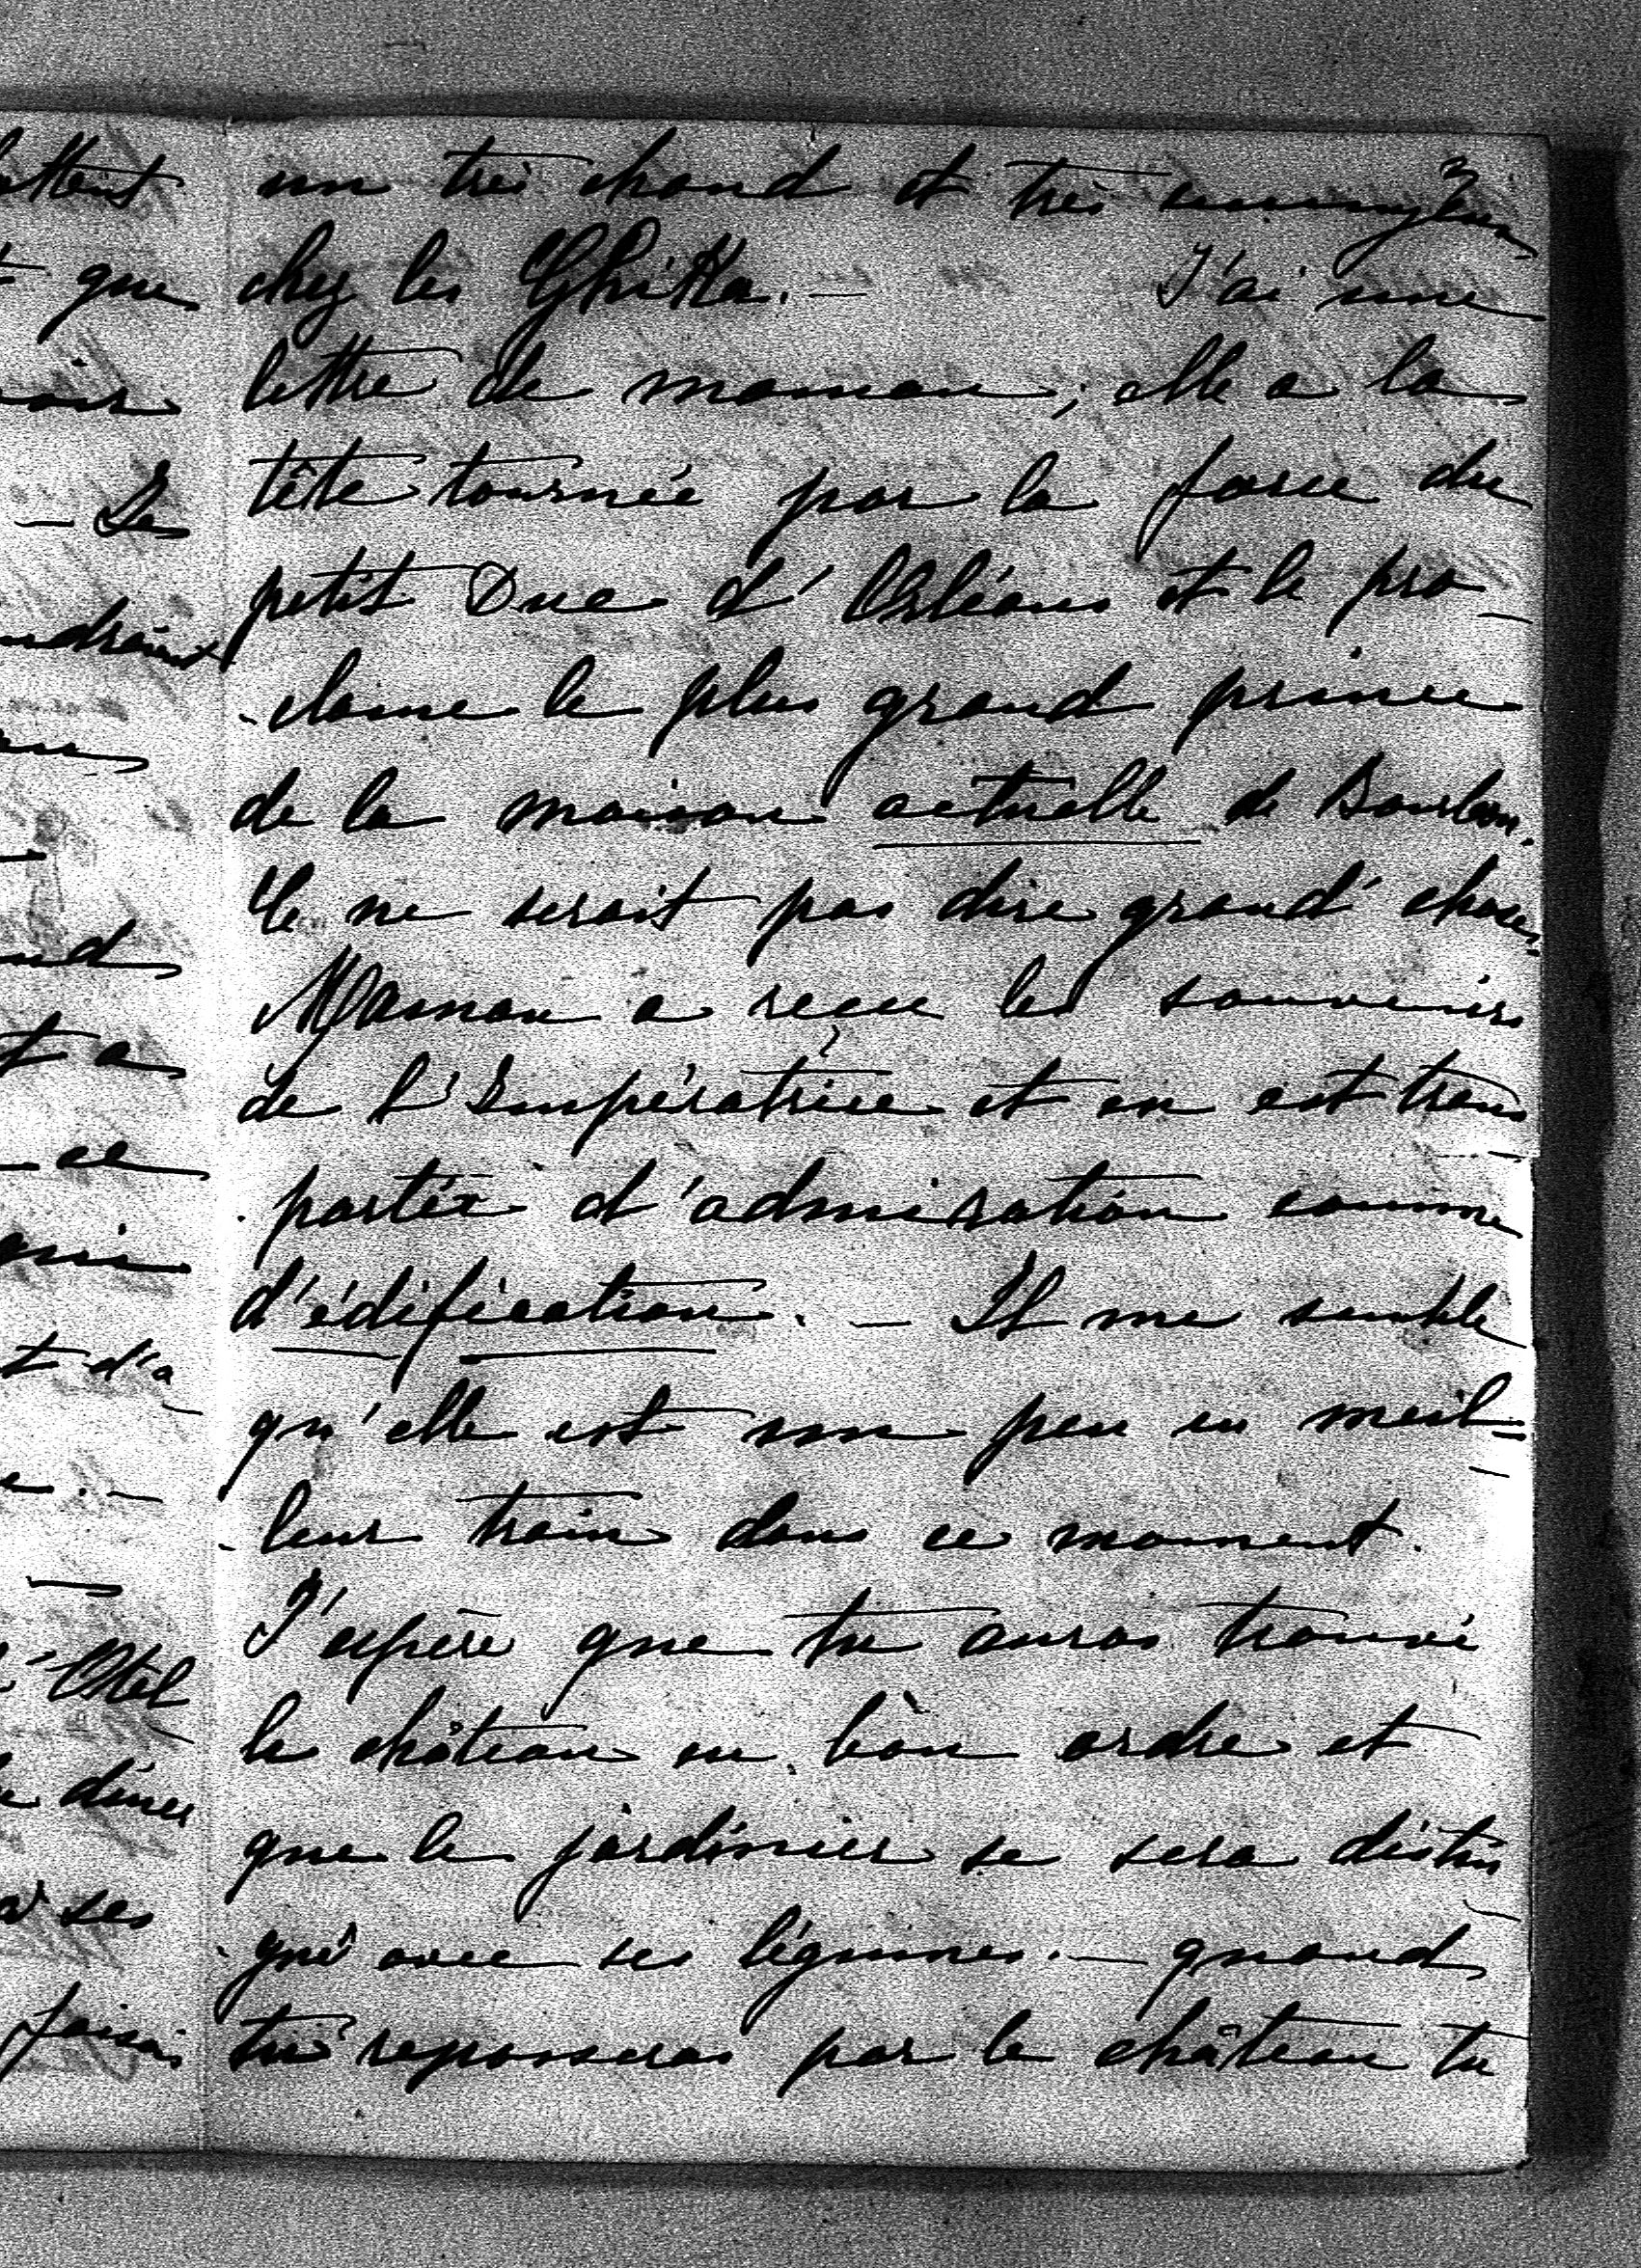 un très chaud et très ennuyeux
chez les Ghika. — J'ai une
lettre de maman; elle a la
tête tournée par la farce du
petit Duc d'Orléans et le pro-
-clame le plus grand prince
de la maison actuelle de Bourbon.
Ce ne serait pas dire grand'chose.
Maman a reçu les souvenirs
de l'Impératrice et en est trans
-portée d'admiration comme
d'édification. — Il me semble
qu'elle est un peu en meil-
-leur train dans ce moment.
J'espère que tu auras trouvé
le château en bon ordre et
que le jardinier se sera distin
-gué avec ses légumes. — quand
tu repasseras par le château tu
que
oir
— Le
udraient
nd
t a
ce
t d'a
dîner
à ses
faisais